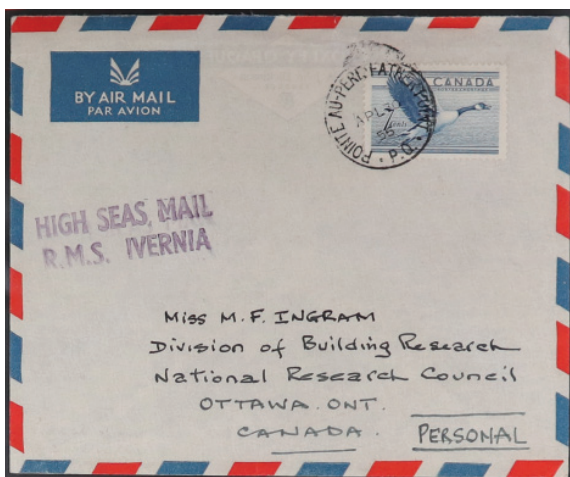 BY AIR MAIL
PAR AVION
POINTE AU-PERE
P.Q.
CANADA
HIGH SEAS, MAIL
R.M.S. IVERNIA
Miss M.F. INGRAM
Division of Building Research
National Research Council
OTTAWA. ONT.
CANADA.
PERSONAL